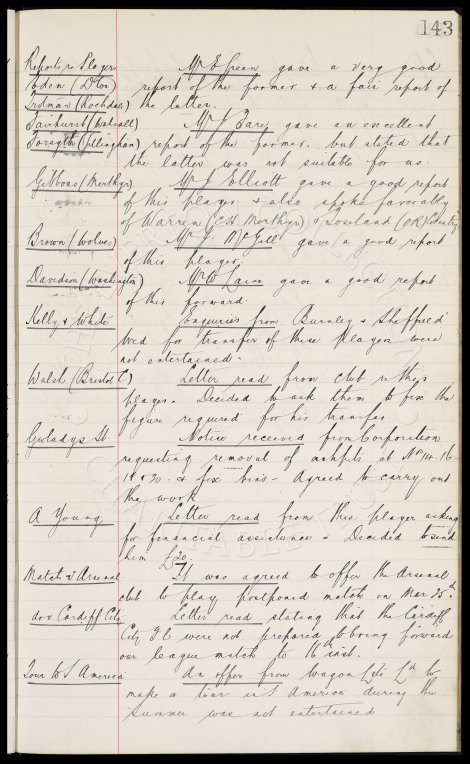 143
Reports re Players Mr E Green gave a very good
Eden (D'ton) report of the former & a fair report of
(Rochdale) the latter.
Fairhurst (Walsall) Mr J Fare gave an excellent
Forsyth (Gillingham) report of the former, but stated that
the latter was not suitable for us.
Gibbons (Merthyr) Mr J Elliott gave a good report
of this player & also spoke favorably
of Warren (C.H. Merthyr) & Loseland (OR) Coventry
Brown (Wolves) Mr J. McGill gave a good report
of this player.
Davidson (Washington) Mr W gave a good report
of this forward.
Kelly & White Enquiries from Burnley & Sheffield
Wed for transfer of these players were
not entertained.
Walsh (Bristol C) Letter read from club re this
player. Decided to ask them to fix the
figure required for his transfer.
Gwladys St Notice received from Corporation
requesting removal of ashpits at Nos 14. 16
18 & 20. & fix bins. Agreed to carry out
the work
A Young Letter read from this player asking
for financial assistance. Decided to send
him £20.
Match v Arsenal It was agreed to offer the Arsenal
club to play postponed match on Mar 25th.
do v Cardiff City Letter read stating that the Cardiff
City F C were not prepared to bring forward
our league match to 16th inst.
Tour to S America An offer from Wagon Lits Ld to
make a tour in S America during the
summer was not entertained